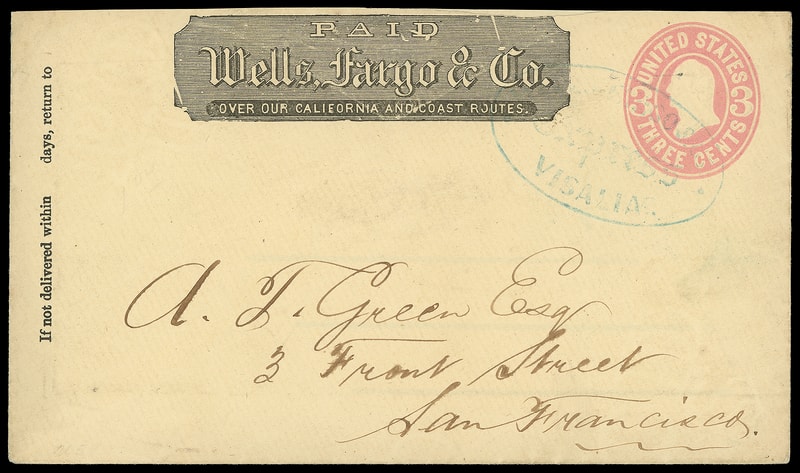 PAID
Wells, Fargo & Co.
OVER OUR CALIFORNIA AND COAST ROUTES.
UNITED STATES
3 3
THREE CENTS
EXPRESS
VISALIA.
If not delivered within days, return to
A. T. Green Esq
3 Front Street
San Francisco.